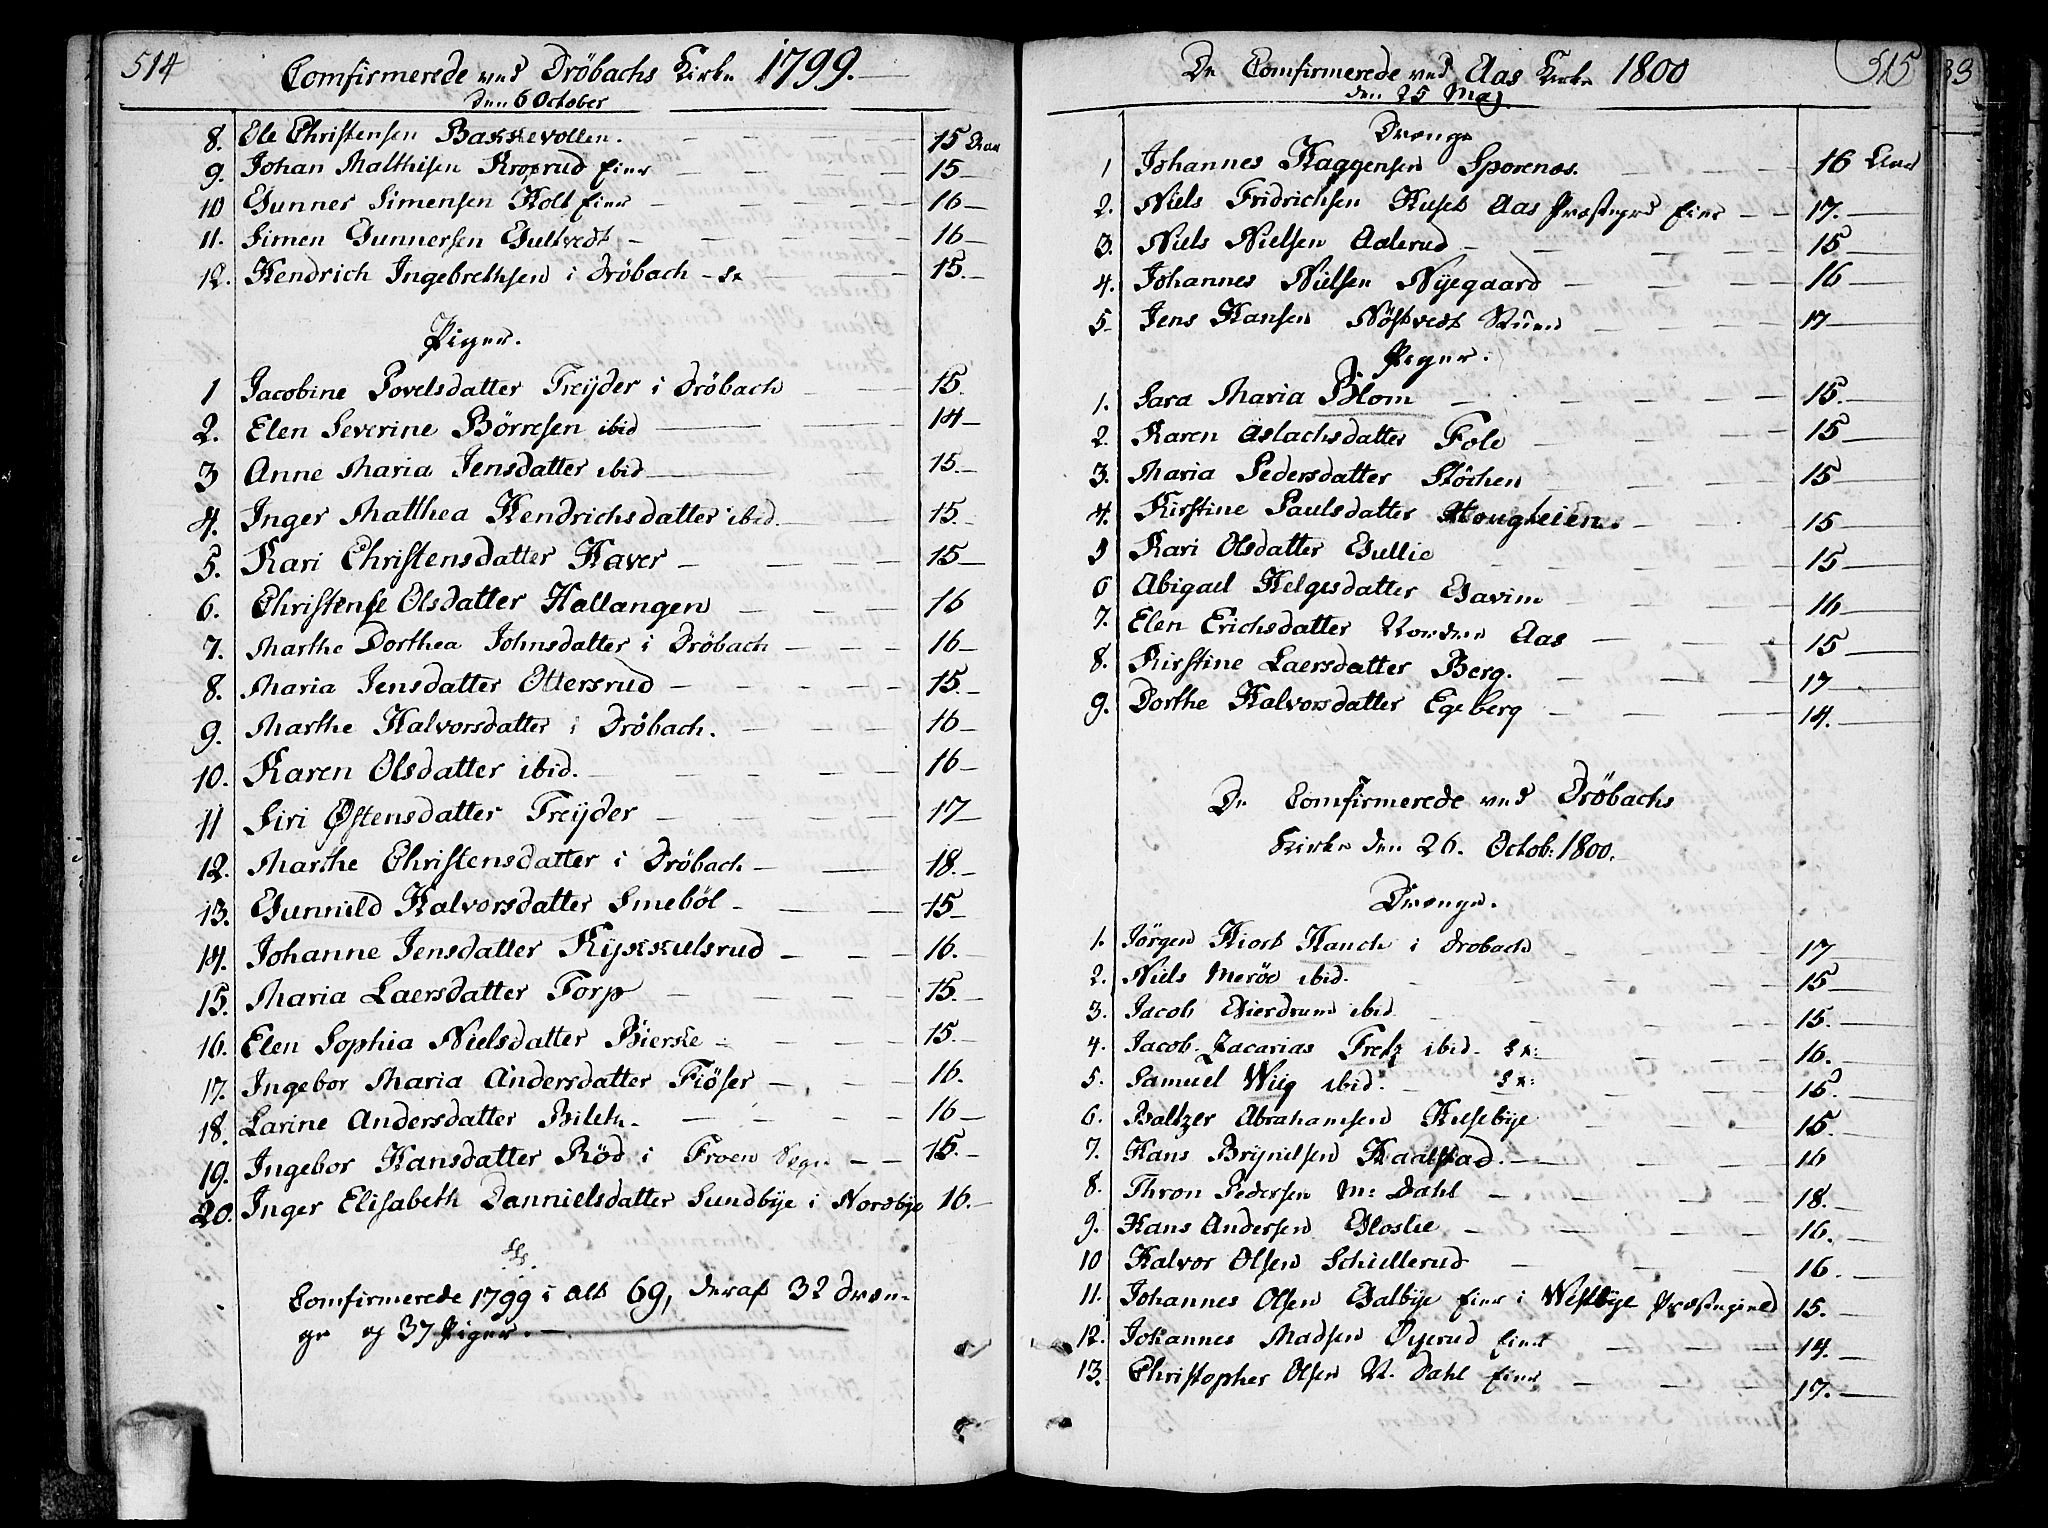 514
Comfirmerede ved Dröbachs Kirke 1799.
den 6 October
8. Ole Christensen Bakkevollen. 15 Aar
9. Johan Matthisen Kroprud Eier 15
10 Gunner Simensen Holt Eier 16
11. Simen Gunnersen Gultvedt 16
12. Hendrich Ingebrethsen i Dröbach 15.
Piger.
1 Jacobine Povelsdatter Treyder i Dröbach 15.
2. Elen Severine Börresen ibid 14
3 Anne Maria Jensdatter ibid 15.
4. Inger Matthea Hendrichsdatter ibid. 15.
5. Kari Christensdatter Haver 15
6. Christense Olsdatter Hallangen 16
7. Marthe Dorthea Johnsdatter i Dröbach 16
8. Maria Jensdatter Ottersrud 15.
9. Marthe Halvorsdatter i Dröbach. 16
10. Karen Olsdatter ibid. 16
11 Siri Østensdatter Treyder 17
12. Marthe Christensdatter i Dröbach 18.
13. Gunnild Halvorsdatter Smeböl 15
14. Johanne Jensdatter Kykkulsrud 16.
15. Maria Laersdatter Torp 15.
16. Elen Sophia Nielsdatter Bierke 15.
17. Ingebor Maria Andersdatter Fiöser 16.
18. Larine Andersdatter Bileth. 16
19. Ingebor Hansdatter Röd i Froen Sogn 15.
20. Inger Elisabeth Dannielsdatter Sundbye i Nordbye 16.
Comfirmerede 1799 i alt 69, deraf 32 Dræn-
ge og 37 Piger.
515
De Comfirmerede ved Aas Kirke 1800
den 25 Maj
Drenge
1 Johannes Haggensen Sporenæs. 16 Aar
2. Niels Fridrichsen Huset Aas Præstegrd Eier 17.
3. Niels Nielsen Aalerud 15
4. Johannes Nielsen Nyegaard 16
5. Jens Hansen Nöstvedt 17
Piger.
1. Sara Maria Blom 15.
2. Karen Aslachsdatter Fole 15
3. Maria Pedersdatter Stöchen 15
4. Kirstine Paulsdatter Hougteien. 15
5 Kari Olsdatter Gullie 15
6 Abigael Helgesdatter Gavim 16
7. Elen Erichsdatter Nordre Aas 15
8. Kirstine Laersdatter Berg. 17
9. Dorthe Halvorsdatter Egeberg 14.
De Comfirmerede ved Dröbachs
Kirke den 26. Octob: 1800.
Drenge.
1. Jörgen Hiort Hauch i Drobach 17
2. Niels Meröe ibid. 15
3. Jacob Gierdrum ibid. 15.
4. Jacob Zacarias Fretz ibid. 16.
5. Samuel Wiig ibid. 15.
6. Baltzer Abrahamsen Husebye 15.
7. Hans Brynelsen Kaalstad. 16
8. Thron Pedersen M: Dahl 18.
9. Hans Andersen Gloslie 16.
10 Halvor Olsen Schiellerud 16.
11. Johannes Olsen Galbye Eier i Westbye Præstegield 15.
12. Johannes Madsen Oyerud Eier 14.
13. Christopher Olsen N. Dahl Eier 17.